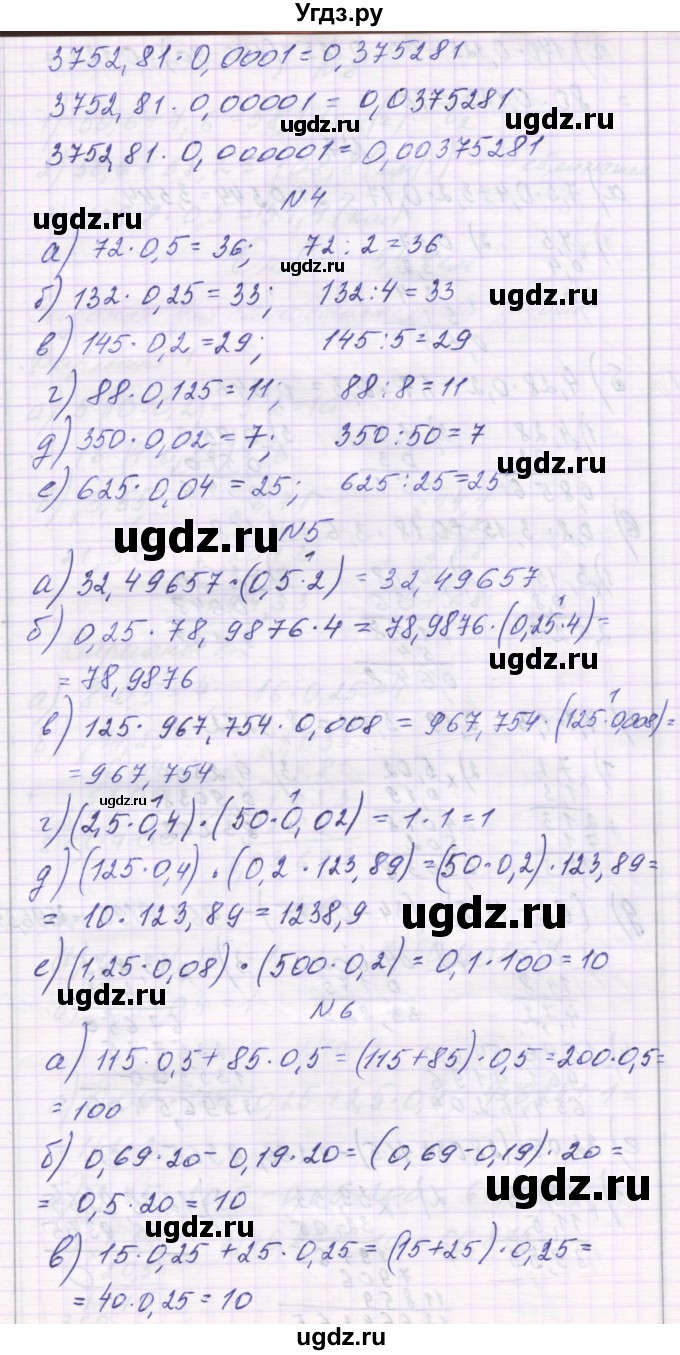 Угдз.ру
3752,81·0,0001=0,375281
3752,81·0,00001=0,0375281
ugdz.ru ugdz.ru
3752,81·0,000001=0,00375281
N4
ugdz.ru
а) 72·0,5=36; 72:2=36
ugdz.ru
б) 132·0,25=33; 132:4=33
ugdz.ru
в) 145·0,2=29; 145:5=29
г) 88·0,125=11; 88:8=11
д) 350·0,02=7; 350:50=7
ugdz.ru
е) 625·0,04=25; 625:25=25
ugdz.ru N5
1
а) 32,49657·(0,5·2)=32,49657
1
б) 0,25·78,9876·4=78,9876·(0,25·4)=
ugdz.ru
=78,9876
1
в) 125·967,754·0,008=967,754·(125·0,008)=
=967,754
ugdz.ru
1 1
г) (2,5·0,4)·(50·0,02)=1·1=1
д) (125·0,4)·(0,2·123,89)=(50·0,2)·123,89=
=10·123,89=1238,9
ugdz.ru
е) (1,25·0,08)·(500·0,2)=0,1·100=10
ugdz.ru
N6
а) 115·0,5+85·0,5=(115+85)·0,5=200·0,5=
=100
б) 0,69·20-0,19·20=(0,69-0,19)·20=
ugdz.ru
=0,5·20=10
ugdz.ru
в) 15·0,25+25·0,25=(15+25)·0,25=
=40·0,25=10
ugdz.ru